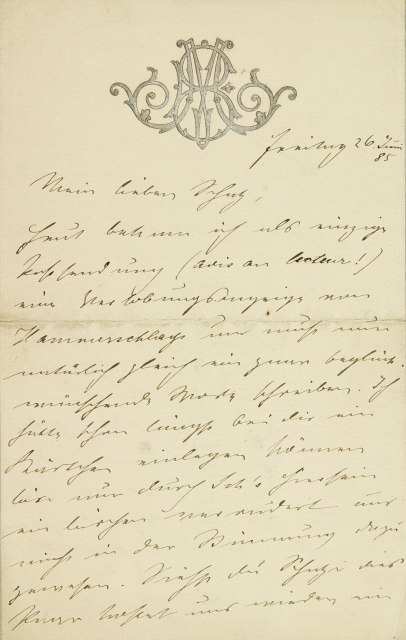 Freitag 26 Juni
85
Mein lieber Schatz,
heut bekam ich als einzige
Postsendung (avis au lecteur!)
eine Verlobungsanzeige von
Hammerschlags und muß nun
natürlich gleich ein paar beglück-
wünschende Worte schreiben. Ich
hätte schon längst bei dir ein
Kärtchen einlegen können
war nur durch Hiersein
ein bischen verändert und
nicht in der Stimmung dazu
gewesen. Siehst du Schatzi dies
Paar hat uns wieder ein